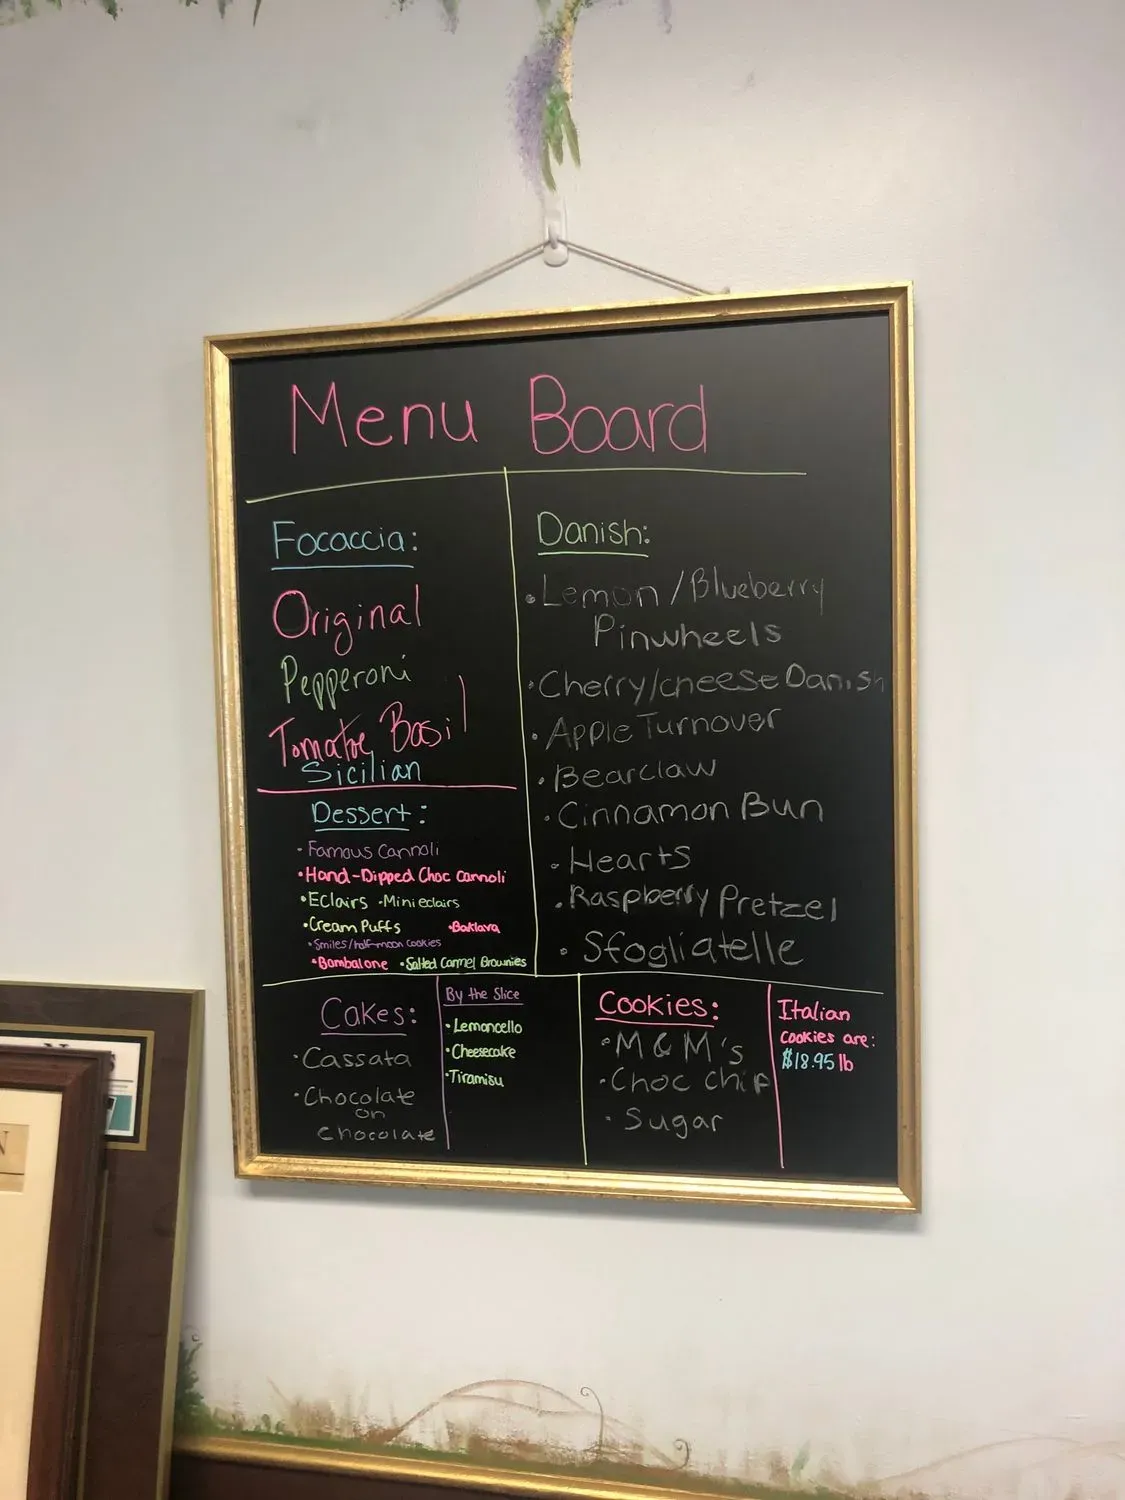 Menu Board
Focaccia:
Original
Pepperoni
Tomatoe Basil
Sicilian
Dessert:
• Famous Cannoli
• Hand-Dipped Choc Cannoli
• Eclairs • Mini eclairs
• Cream Puffs • Baklava
• Smiles/half-moon cookies
• Bombalone • Salted Carmel Brownies
Danish:
• Lemon / Blueberry
Pinwheels
• Cherry/cheese Danish
• Apple Turnover
• Bearclaw
• Cinnamon Bun
• Hearts
• Raspberry Pretzel
• Sfogliatelle
Cakes:
• Cassata
• Chocolate
on
chocolate
By the Slice
• Lemoncello
• Cheesecake
• Tiramisu
Cookies:
• M & M's
• Choc chip
• Sugar
Italian
Cookies are:
$18.95 lb
N